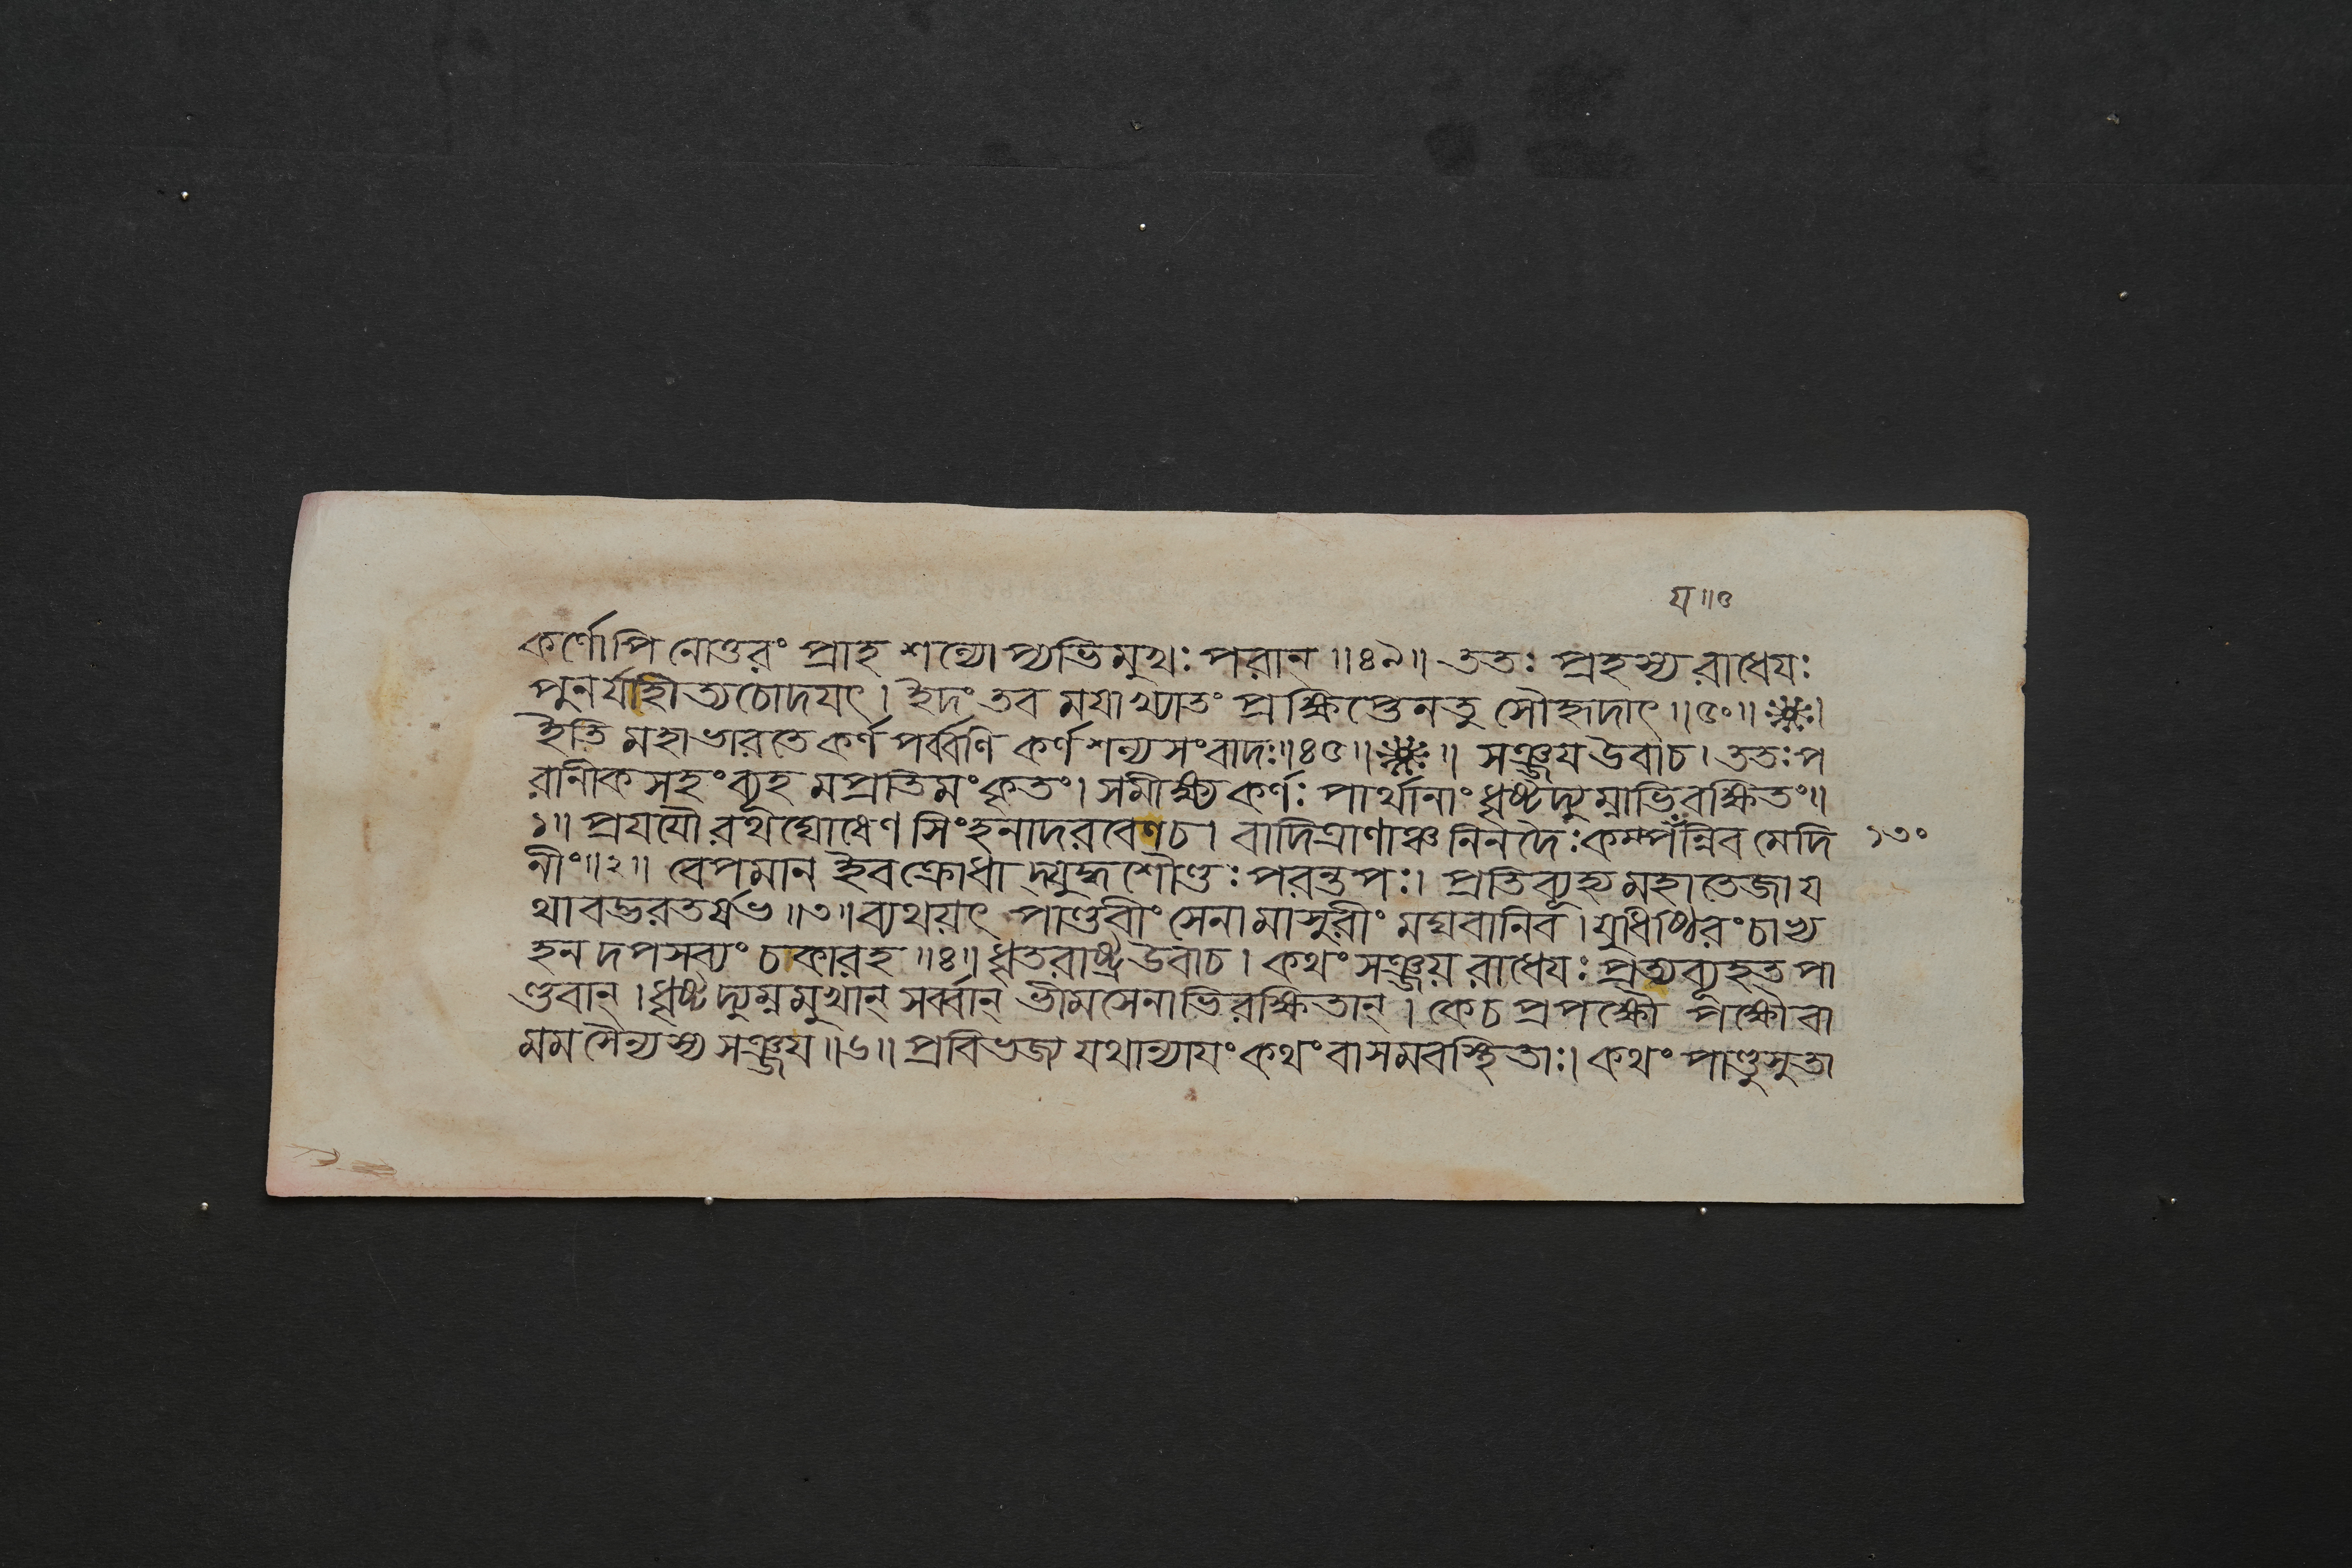 য॥৫
কর্ণোপি নোত্তরং প্রাহ শল্যোপ্যভিমুখঃ পরান্॥৪৯॥ ততঃ প্রহস্য রাধেযঃ
পুনর্যাহীত্যচোদযৎ। ইদং তব মযাখ্যাতং প্রক্ষিপ্তেনতু সৌহৃদাৎ॥৫০॥ ※।
ইতি মহাভারতে কর্ণপর্ব্বণি কর্ণশল্যসংবাদঃ॥৪৫॥※॥ সঞ্জয উবাচ। ততঃপ
রানীকসহং ব্যূহমপ্রতিমংকৃতং। সমীক্ষ্য কর্ণঃ পার্থানাং ধৃষ্টদ্যুম্নাভিরক্ষিতং॥
১॥ প্রযযৌ রথঘোষেণ সিংহনাদরবেণ চ। বাদিত্রাণাঞ্চ নিনদৈঃকম্পযঁন্নিব মেদি ১৩০
নীং॥২॥ বেপমান ইবক্রোধাদ্যুদ্ধশৌণ্ডঃ পরন্তপঃ। প্রতিব্যূহ্য মহাতেজা য
থাবদ্ভরতর্ষভ॥৩॥ ব্যথয়ৎ পাণ্ডবীং সেনামাসুরীং মঘবানিব। যুধিষ্ঠিরংচাভ্য
হনদপসব্যং চকারহ॥৪॥ ধৃতরাষ্ট্র উবাচ। কথং সঞ্জয় রাধেযঃ প্রত্যব্যূহত পা
ণ্ডবান্। ধৃষ্টদ্যুম্নমুখান্ সর্ব্বান্ ভীমসেনাভিরক্ষিতান্। কেচ প্রপক্ষৌ পক্ষৌ বা
মম সৈন্যস্য সঞ্জয॥৬॥ প্রবিভজ্য যথান্যাযং কথং বা সমবস্থিতাঃ। কথং পাণ্ডুসুতা